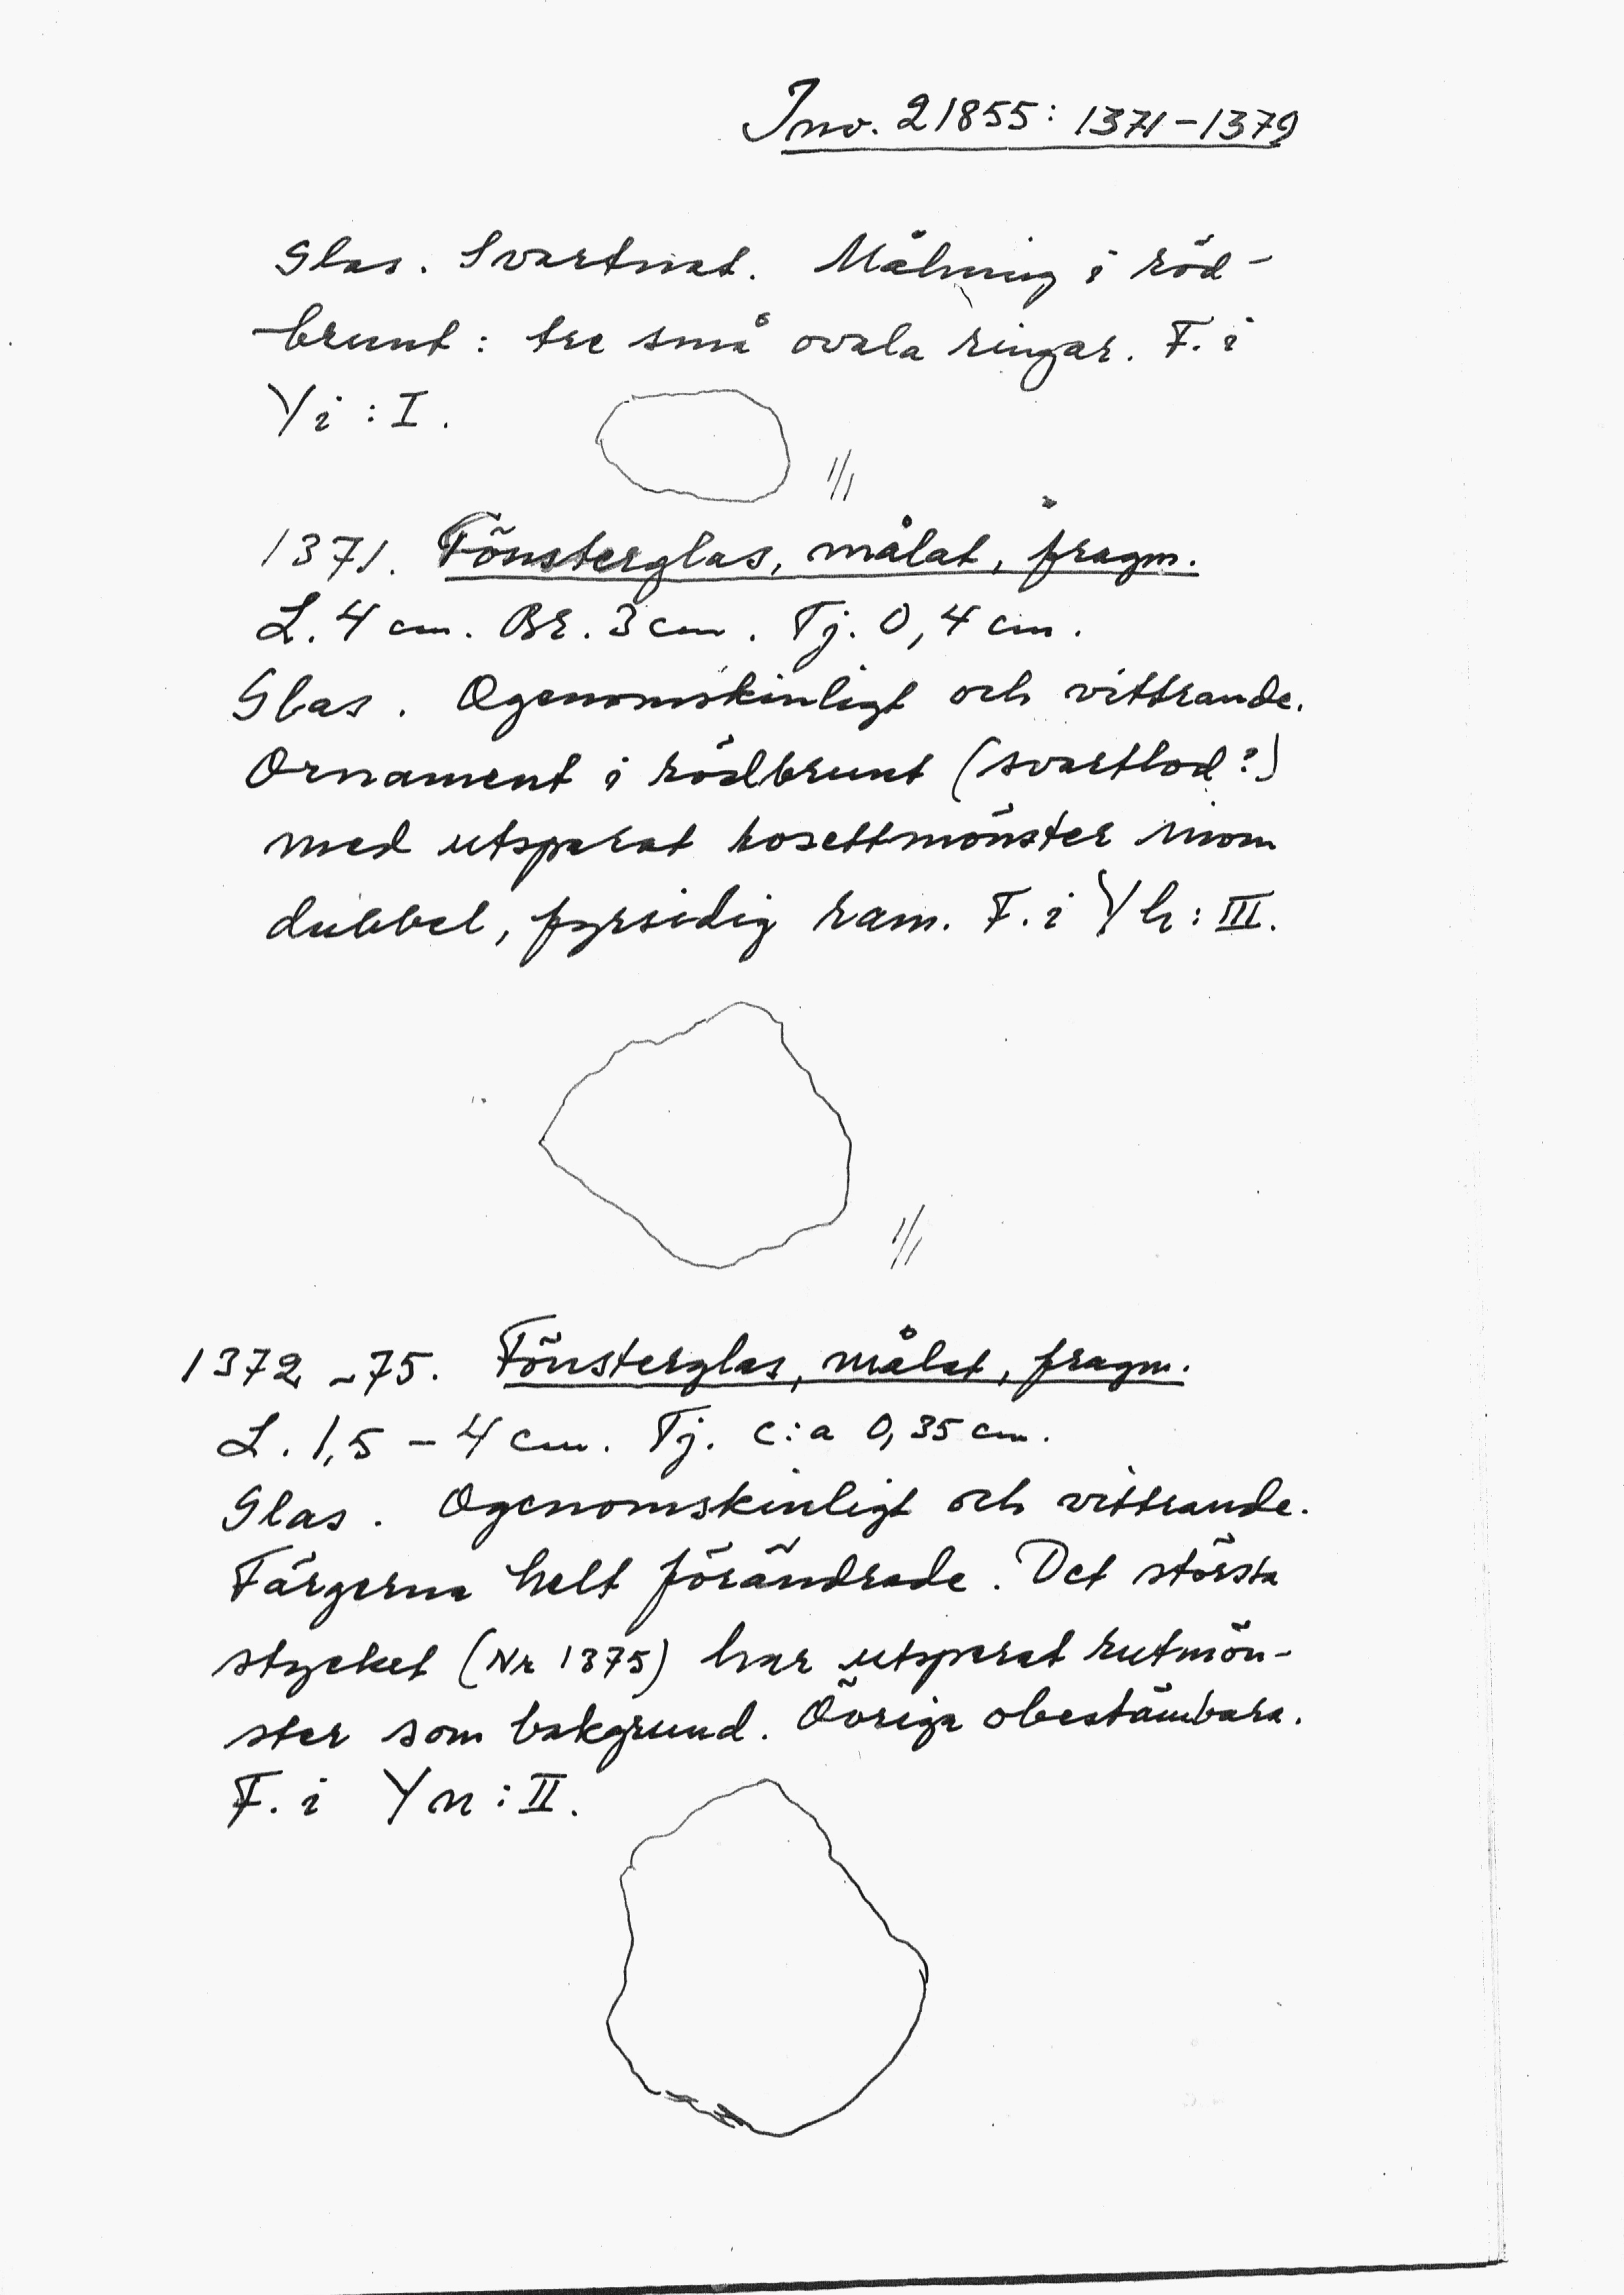 Inv. 21855: 1371-1379
Glas. Svartnat. Målning i röd-
brunt: tre små ovala ringar. F. i
Yi: I.
1/1
1371. Fönsterglas, målat, fragm.
L. 4 cm. Br. 3 cm. Tj. 0,4 cm.
Glas. Ogenomskinligt och vittrande.
Ornament i rödbrunt (svartlod?)
med utsparat rosettmönster inom
dubbel, fyrsidig ram. F. i Yh: III.
1/1
1372-75. Fönsterglas, målat, fragm.
L. 1,5 - 4 cm. Tj. c:a 0,35 cm.
Glas. Ogenomskinligt och vittrande.
Färgerna helt förändrade. Det största
stycket (Nr 1375) har utsparat rutmön-
ster som bakgrund. Övriga obestämbara.
F. i Yn: II.